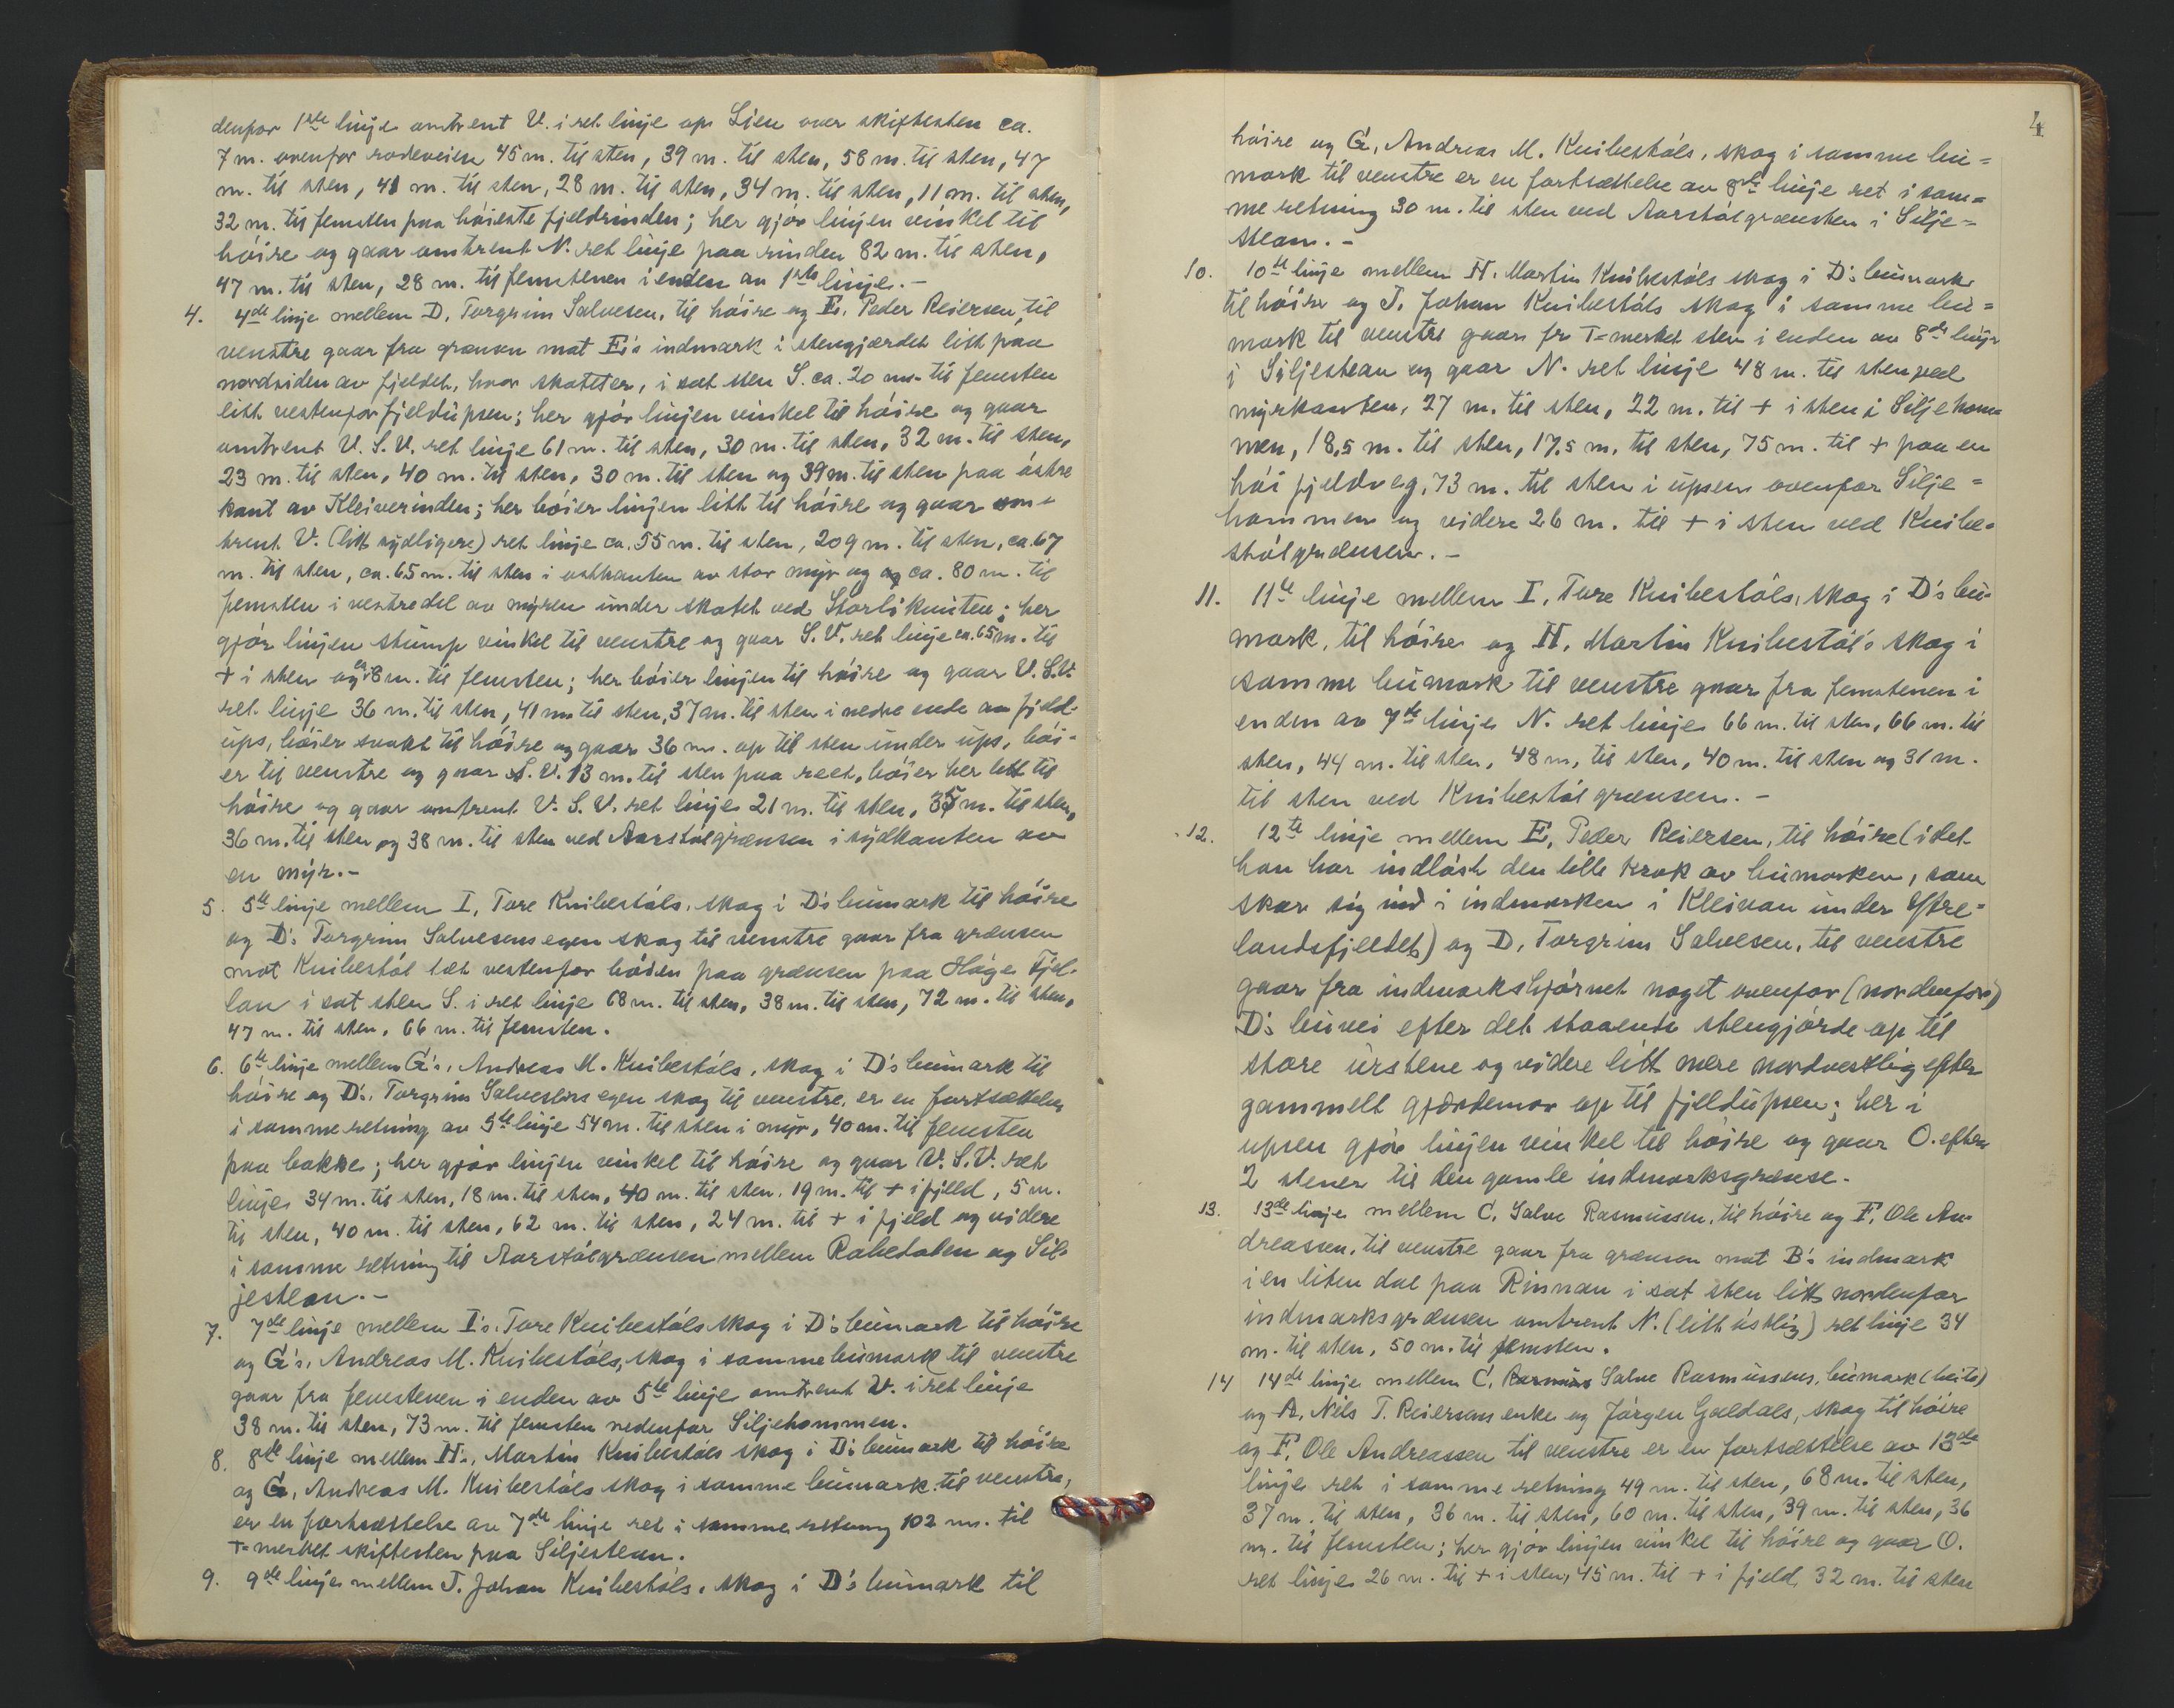 denfor 1ste linje omtrent V. i ret linje op Lien over skiftesten ca.
7 m. ovenfor rodeveien 45 m. til sten, 39 m. til sten, 58 m. til sten, 47
m. til sten, 41 m. til sten, 28 m. til sten, 34 m. til sten, 11 m. til sten,
32 m. til femsten paa høieste fjeldrinden; her gjør linjen vinkel til
høire og gaar omtrent N. ret linje paa rinden 82 m. til sten,
47 m. til sten, 28 m. til femstenen i enden av 1ste linje.-
4. 4de linje mellem D, Torgrim Salvesen, til høire og E, Peder Reiersen, til
venstre gaar fra grænsen mot E's indmark i stengjærdet litt paa
nordsiden av fjeldet, hvor skatet er, i sat sten S. ca. 20 m. til femsten
litt vestenfor fjeldupsen; her gjør linjen vinkel til høire og gaar
omtrent V. S. V. ret linje 61 m. til sten, 30 m. til sten, 32 m. til sten,
23 m. til sten, 40 m. til sten, 30 m. til sten og 39 m. til sten paa østre
kant av Kleiverinden; her bøier linjen litt til høire og gaar om-
trent V. (litt sydligere) ret linje ca. 55 m. til sten, 209 m. til sten, ca. 67
m. til sten, ca. 65 m. til sten i østkanten av stor myr og og ca. 80 m. til
femsten i vestre del av myren under skatet ved Storliknuten; her
gjør linjen stump vinkel til venstre og gaar S. V. ret linje ca. 65 m. til
+ i sten og 8 m. til femsten; her bøier linjen til høire og gaar V. S. V.
ret linje 36 m. til sten, 41 m. til sten, 37 m. til sten i nedre ende av fjeld-
ups, bøier svakt til høire og gaar 36 m. op til sten under ups, bøi-
er til venstre og gaar S. V. 13 m. til sten paa reet, bøier her litt til
høire og gaar omtrent V. S. V. ret linje 21 m. til sten, 35 m. til sten,
36 m. til sten og 38 m. til sten ved Aarstølgrænsen i sydkanten av
en myr.-
5. 5te linje mellem I, Tore Knibestøls, skog i D's bumark til høire
og D's Torgrim Salvesens egen skog til venstre gaar fra grænsen
mot Knibestøl tæt vestenfor boden paa grænsen paa Høge Fjel-
lan i sat sten S. i ret linje 68 m. til sten, 38 m. til sten, 72 m. til sten,
47 m. til sten, 66 m. til femsten.
6. 6te linje mellem G's, Andreas M. Knibestøls, skog i D's bumark til
høire og D's, Torgrim Salvesens egen skog til venstre, er en fortsættelse
i samme retning av 5te linje 54 m. til sten i myr, 40 m. til femsten
paa bakke; her gjør linjen vinkel til høire og gaar V. S. V. ret
linje 34 m. til sten, 18 m. til sten, 40 m. til sten, 19 m. til + i fjeld, 5 m.
til sten, 40 m. til sten, 62 m. til sten, 24 m. til + i fjeld og videre
i samme retning til Aarstølgrænsen mellem Rabedalen og Sil-
jestean.-
7. 7de linje mellem I's, Tore Knibestøls skog i D's bumark til høire
og G's, Andreas M. Knibestøls, skog i samme bumark til venstre
gaar fra femstenen i enden av 5te linje omtrent V. i ret linje
38 m. til sten, 73 m. til femsten nedenfor Siljehommen.
8. 8de linje mellem H's, Martin Knibestøls skog i D's bumark til høire
og G, Andreas M. Knibestøls skog i samme bumark til venstre,
er en fortsættelse av 7de linje ret i samme retning 102 m. til
T-merket skiftesten paa Siljestean.
9. 9de linje mellem J. Johan Knibestøls, skog i D's bumark til
4
høire og G, Andreas M. Knibestøls, skog i samme bu=
mark til venstre er en fortsættelse av 8de linje ret i sam=
me retning 30 m. til sten ved Aarstølgrænsen i Silje=
stean.-
10. 10de linje mellem H. Martin Knibestøls skog i D's bumark
til høire og J. Johan Knibestøls skog i samme bu=
mark til venstre gaar fr T=merket sten i enden av 8de linje
i Siljestean og gaar N. ret linje 48 m. til sten ved
myrkanten, 27 m. til sten, 22 m. til + i sten i Siljehom
men, 18,5 m. til sten, 17,5 m. til sten, 75 m. til + paa en
høi fjeldveg, 73 m. til sten i upsen ovenfor Silje=
hommen og videre 26 m. til + i sten ved Knibe=
stølgrænsen.-
11. 11te linje mellem I, Tore Knibestøls, skog i D's bu-
mark, til høire og H, Martin Knibestøl's skog i
samme bumark til venstre gaar fra femstenen i
enden av 7de linje N. ret linje 66 m. til sten, 66 m. til
sten, 44 m. til sten, 48 m. til sten, 40 m. til sten og 31 m.
til sten ved Knibestølgrænsen.-
12. 12te linje mellem E, Peder Reiersen, til høire (idet
han har indløst den lille krok av bumarken, som
skar sig ind i indmarken i Kleivan under Eftre=
landsfjeldet) og D, Torgrim Salvesen, til venstre
gaar fra indmarkshjørnet noget ovenfor (nordenfor)
D's buvei efter det staaende stengjærde op til
store urstene og videre litt mere nordvestlig efter
gammelt gjærdemor op til fjeldupsen; her i
upsen gjør linjen vinkel til høire og gaar O. efter
2 stener til den gamle indmarksgrænse.
13. 13de linje mellem C, Salve Rasmussen, til høire og F, Ole An-
dreassen, til venstre gaar fra grænsen mot B's indmark
i en liten dal paa Rinnan i sat sten litt nordenfor
indmarksgrænsen omtrent N. (litt østlig) ret linje 34
m. til sten, 50 m. til femsten.
14 14de linje mellem C, Rasmus Salve Rasmussens, bumark (beite)
og A, Nils T. Reiersens enke og Jørgen Galdals, skog til høire
og F, Ole Andreassen til venstre er en fortsættelse av 13de
linje ret i samme retning 49 m. til sten, 68 m. til sten,
37 m. til sten, 36 m. til sten, 60 m. til sten, 39 m. til sten, 36
m. til femsten; her gjør linjen vinkel til høire og gaar O.
ret linje 26 m. til + i sten, 45 m. til + i fjeld, 32 m. til sten